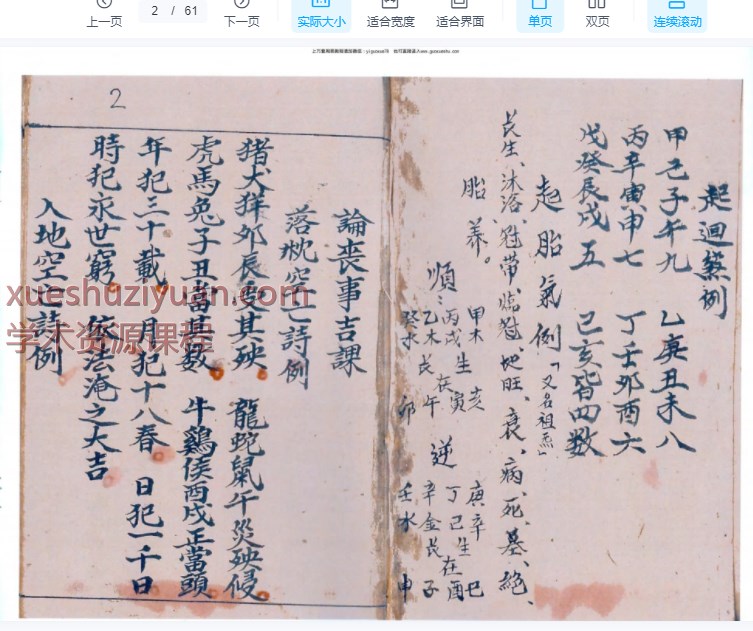 上一页
2 / 61
下一页
实际大小
适合宽度
适合界面
单页
双页
连续滚动
起迴煞例
甲己子午九 乙庚丑未八
丙辛寅申七 丁壬卯酉六
戊癸辰戌五 己亥皆四数
起胎氣例「又名祖炁」
長生、沐浴、冠帶、臨冠、地旺、衰、病、死、墓、絕、
胎養。
順: 逆
甲木生亥 庚辛巳
丙戊生在寅 丁己生在酉
乙木長午 辛金長子
癸水卯 壬水申
2
論喪事吉課
落枕空亡詩例
猪犬猚夘辰安其殃 龍蛇鼠午災殃侵
虎馬兔子丑當其数 牛鷄侯酉戍正當頭
年犯三十載 月犯十八春 日犯一千日
時犯永世窮 依法淹之大吉
入地空亡詩例
xueshuziyuan.com
学术资源课程